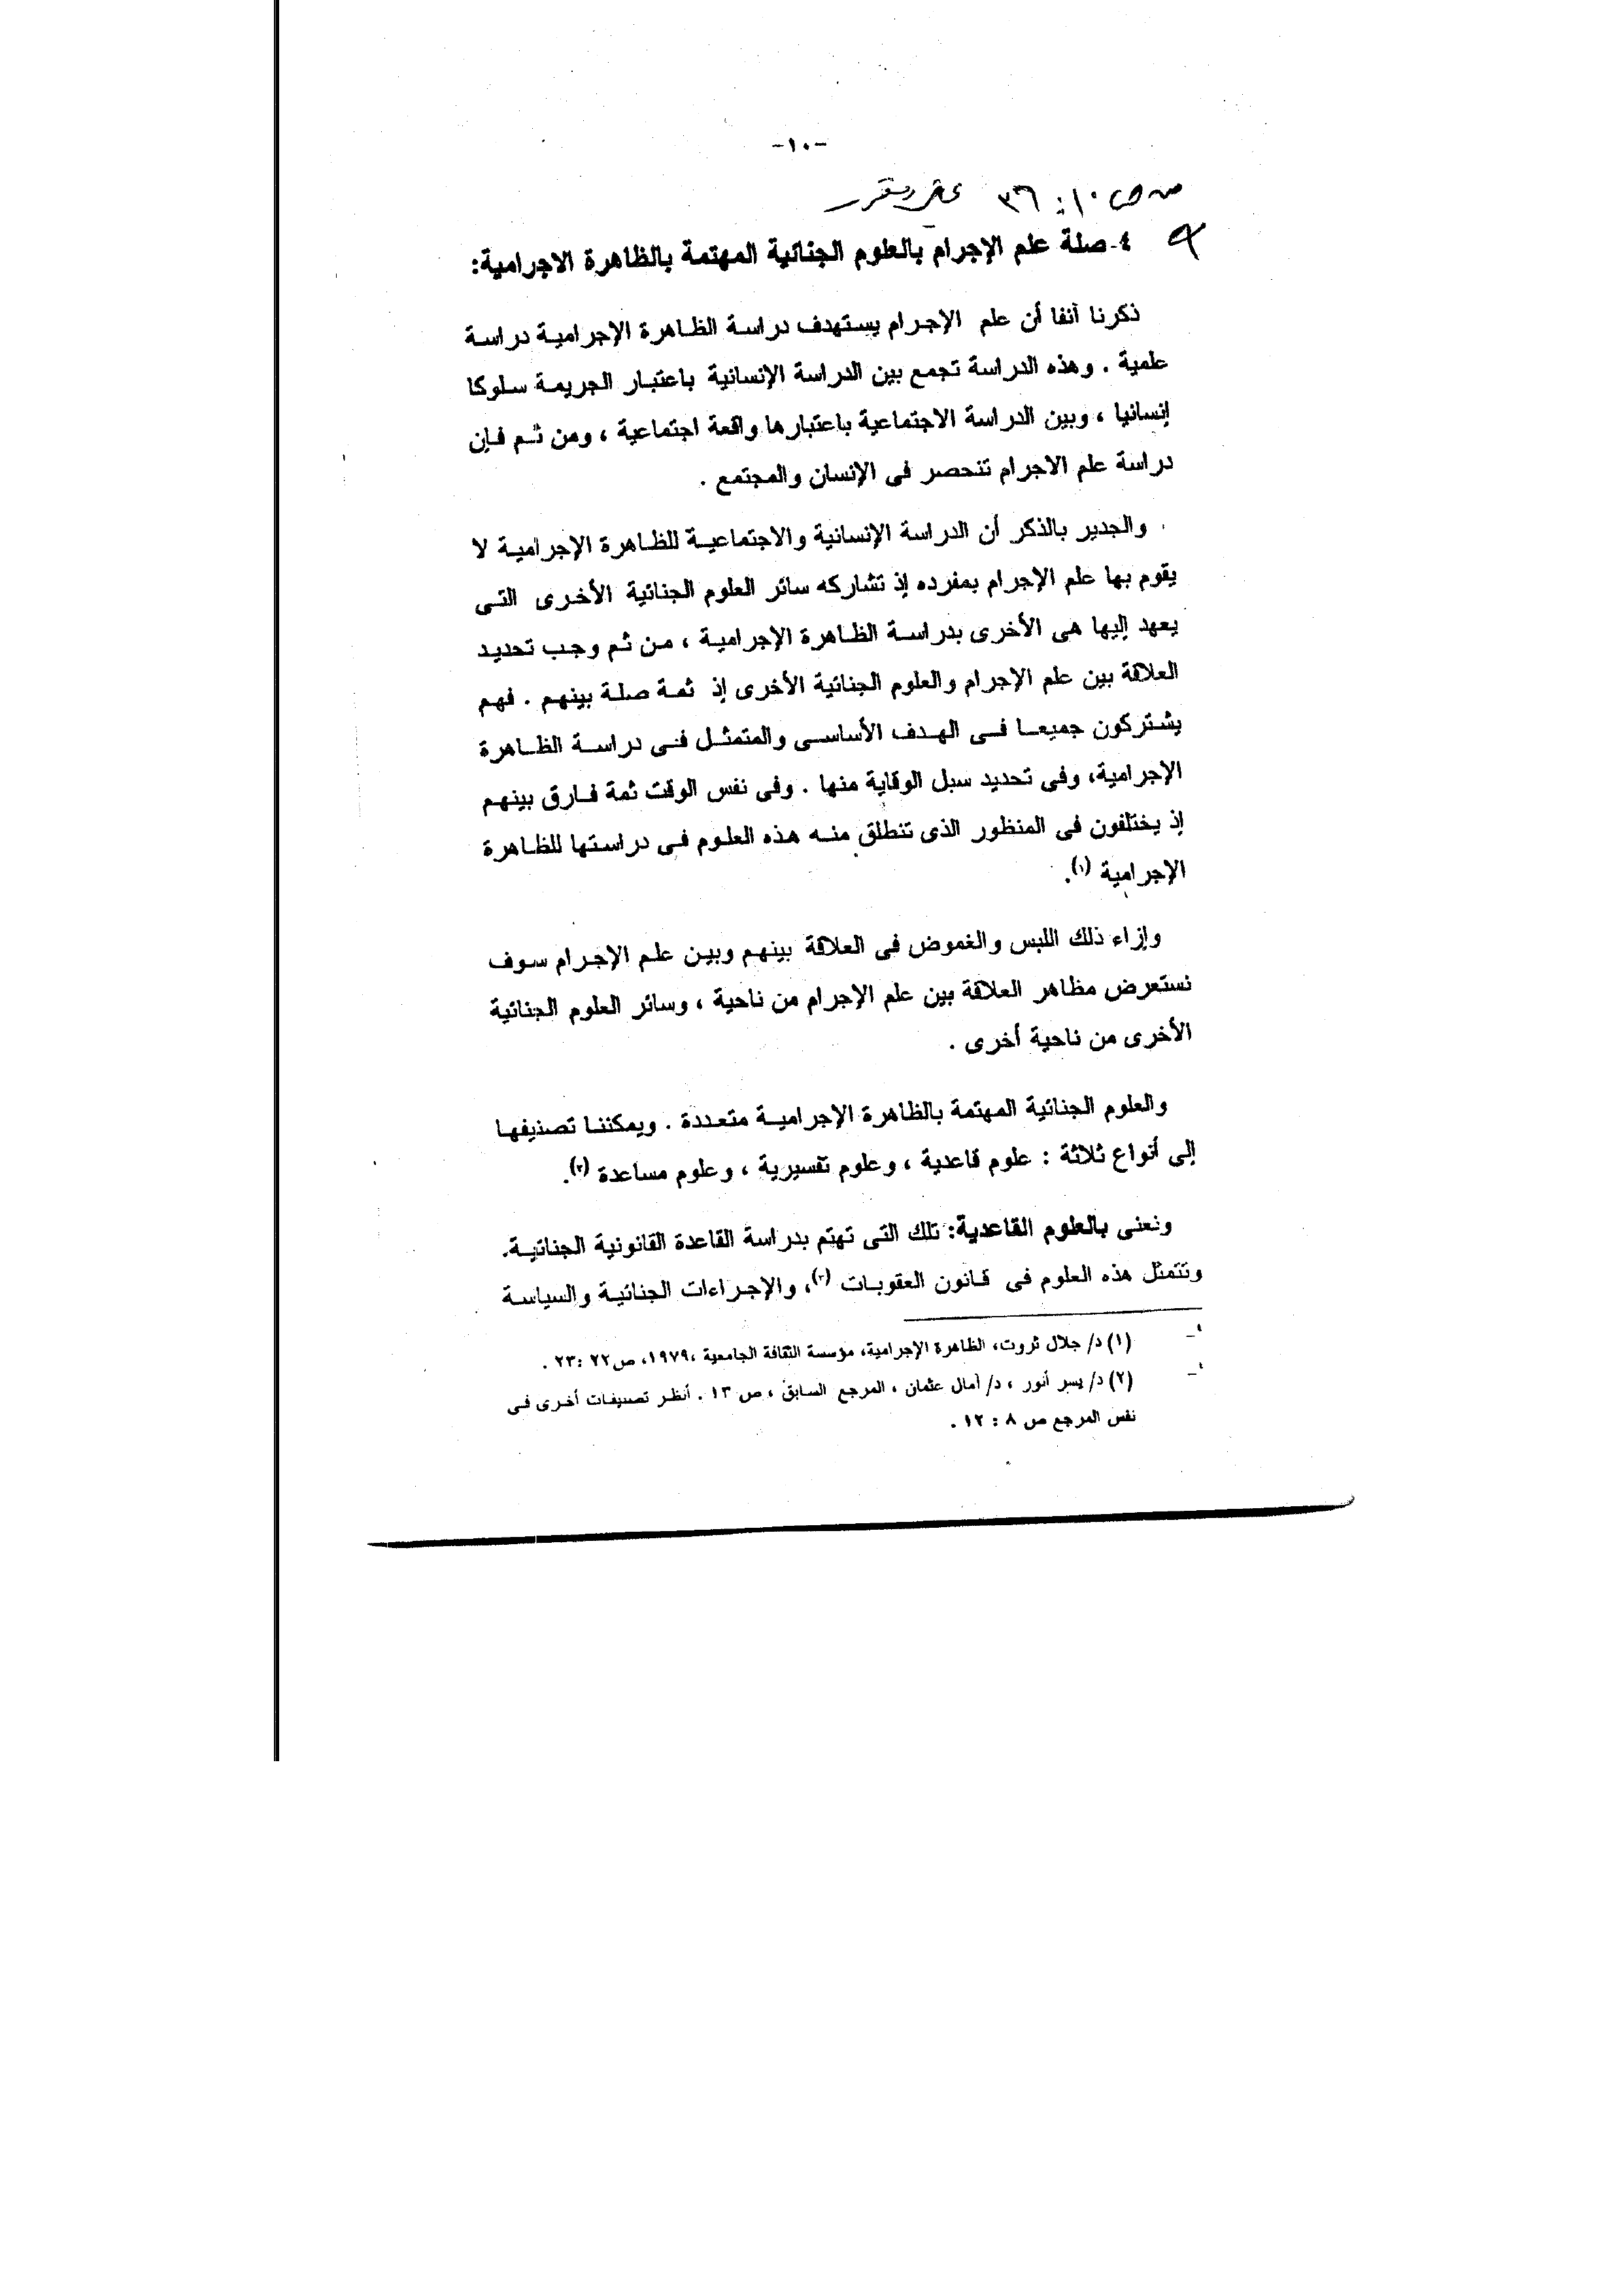 -١٠-
ص ص ١٠ : ٣٦ غير مقرر
٤- صلة علم الإجرام بالعلوم الجنائية المهتمة بالظاهرة الاجرامية:
ذكرنا آنفا أن علم الإجرام يستهدف دراسة الظاهرة الإجرامية دراسة
علمية . وهذه الدراسة تجمع بين الدراسة الإنسانية باعتبار الجريمة سلوكا
إنسانيا ، وبين الدراسة الاجتماعية باعتبارها واقعة اجتماعية ، ومن ثم فإن
دراسة علم الاجرام تنحصر فى الإنسان والمجتمع .
والجدير بالذكر أن الدراسة الإنسانية والاجتماعية للظاهرة الإجرامية لا
يقوم بها علم الإجرام بمفرده إذ تشاركه سائر العلوم الجنائية الأخرى التى
يعهد إليها هى الأخرى بدراسة الظاهرة الإجرامية ، من ثم وجب تحديد
العلاقة بين علم الإجرام والعلوم الجنائية الأخرى إذ ثمة صلة بينهم . فهم
يشتركون جميعا فى الهدف الأساسى والمتمثل فى دراسة الظاهرة
الإجرامية، وفى تحديد سبل الوقاية منها . وفى نفس الوقت ثمة فارق بينهم
إذ يختلفون فى المنظور الذى تنطلق منه هذه العلوم فى دراستها للظاهرة
الإجرامية (١).
وإزاء ذلك اللبس والغموض فى العلاقة بينهم وبين علم الإجرام سوف
نستعرض مظاهر العلاقة بين علم الإجرام من ناحية ، وسائر العلوم الجنائية
الأخرى من ناحية أخرى .
والعلوم الجنائية المهتمة بالظاهرة الإجرامية متعددة . ويمكننا تصنيفها
إلى أنواع ثلاثة : علوم قاعدية ، وعلوم تفسيرية ، وعلوم مساعدة (٢).
ونعنى بالعلوم القاعدية: تلك التى تهتم بدراسة القاعدة القانونية الجنائية.
وتتمثل هذه العلوم فى قانون العقوبات (٣)، والإجراءات الجنائية والسياسة
(١) د/ جلال ثروت، الظاهرة الإجرامية، مؤسسة الثقافة الجامعية ،١٩٧٩، ص٢٢ :٢٣ .
(٢) د/ يسر أنور ، د/ آمال عثمان ، المرجع السابق ، ص ١٣ . أنظر تصنيفات أخرى فى
نفس المرجع ص ٨ : ١٢ .